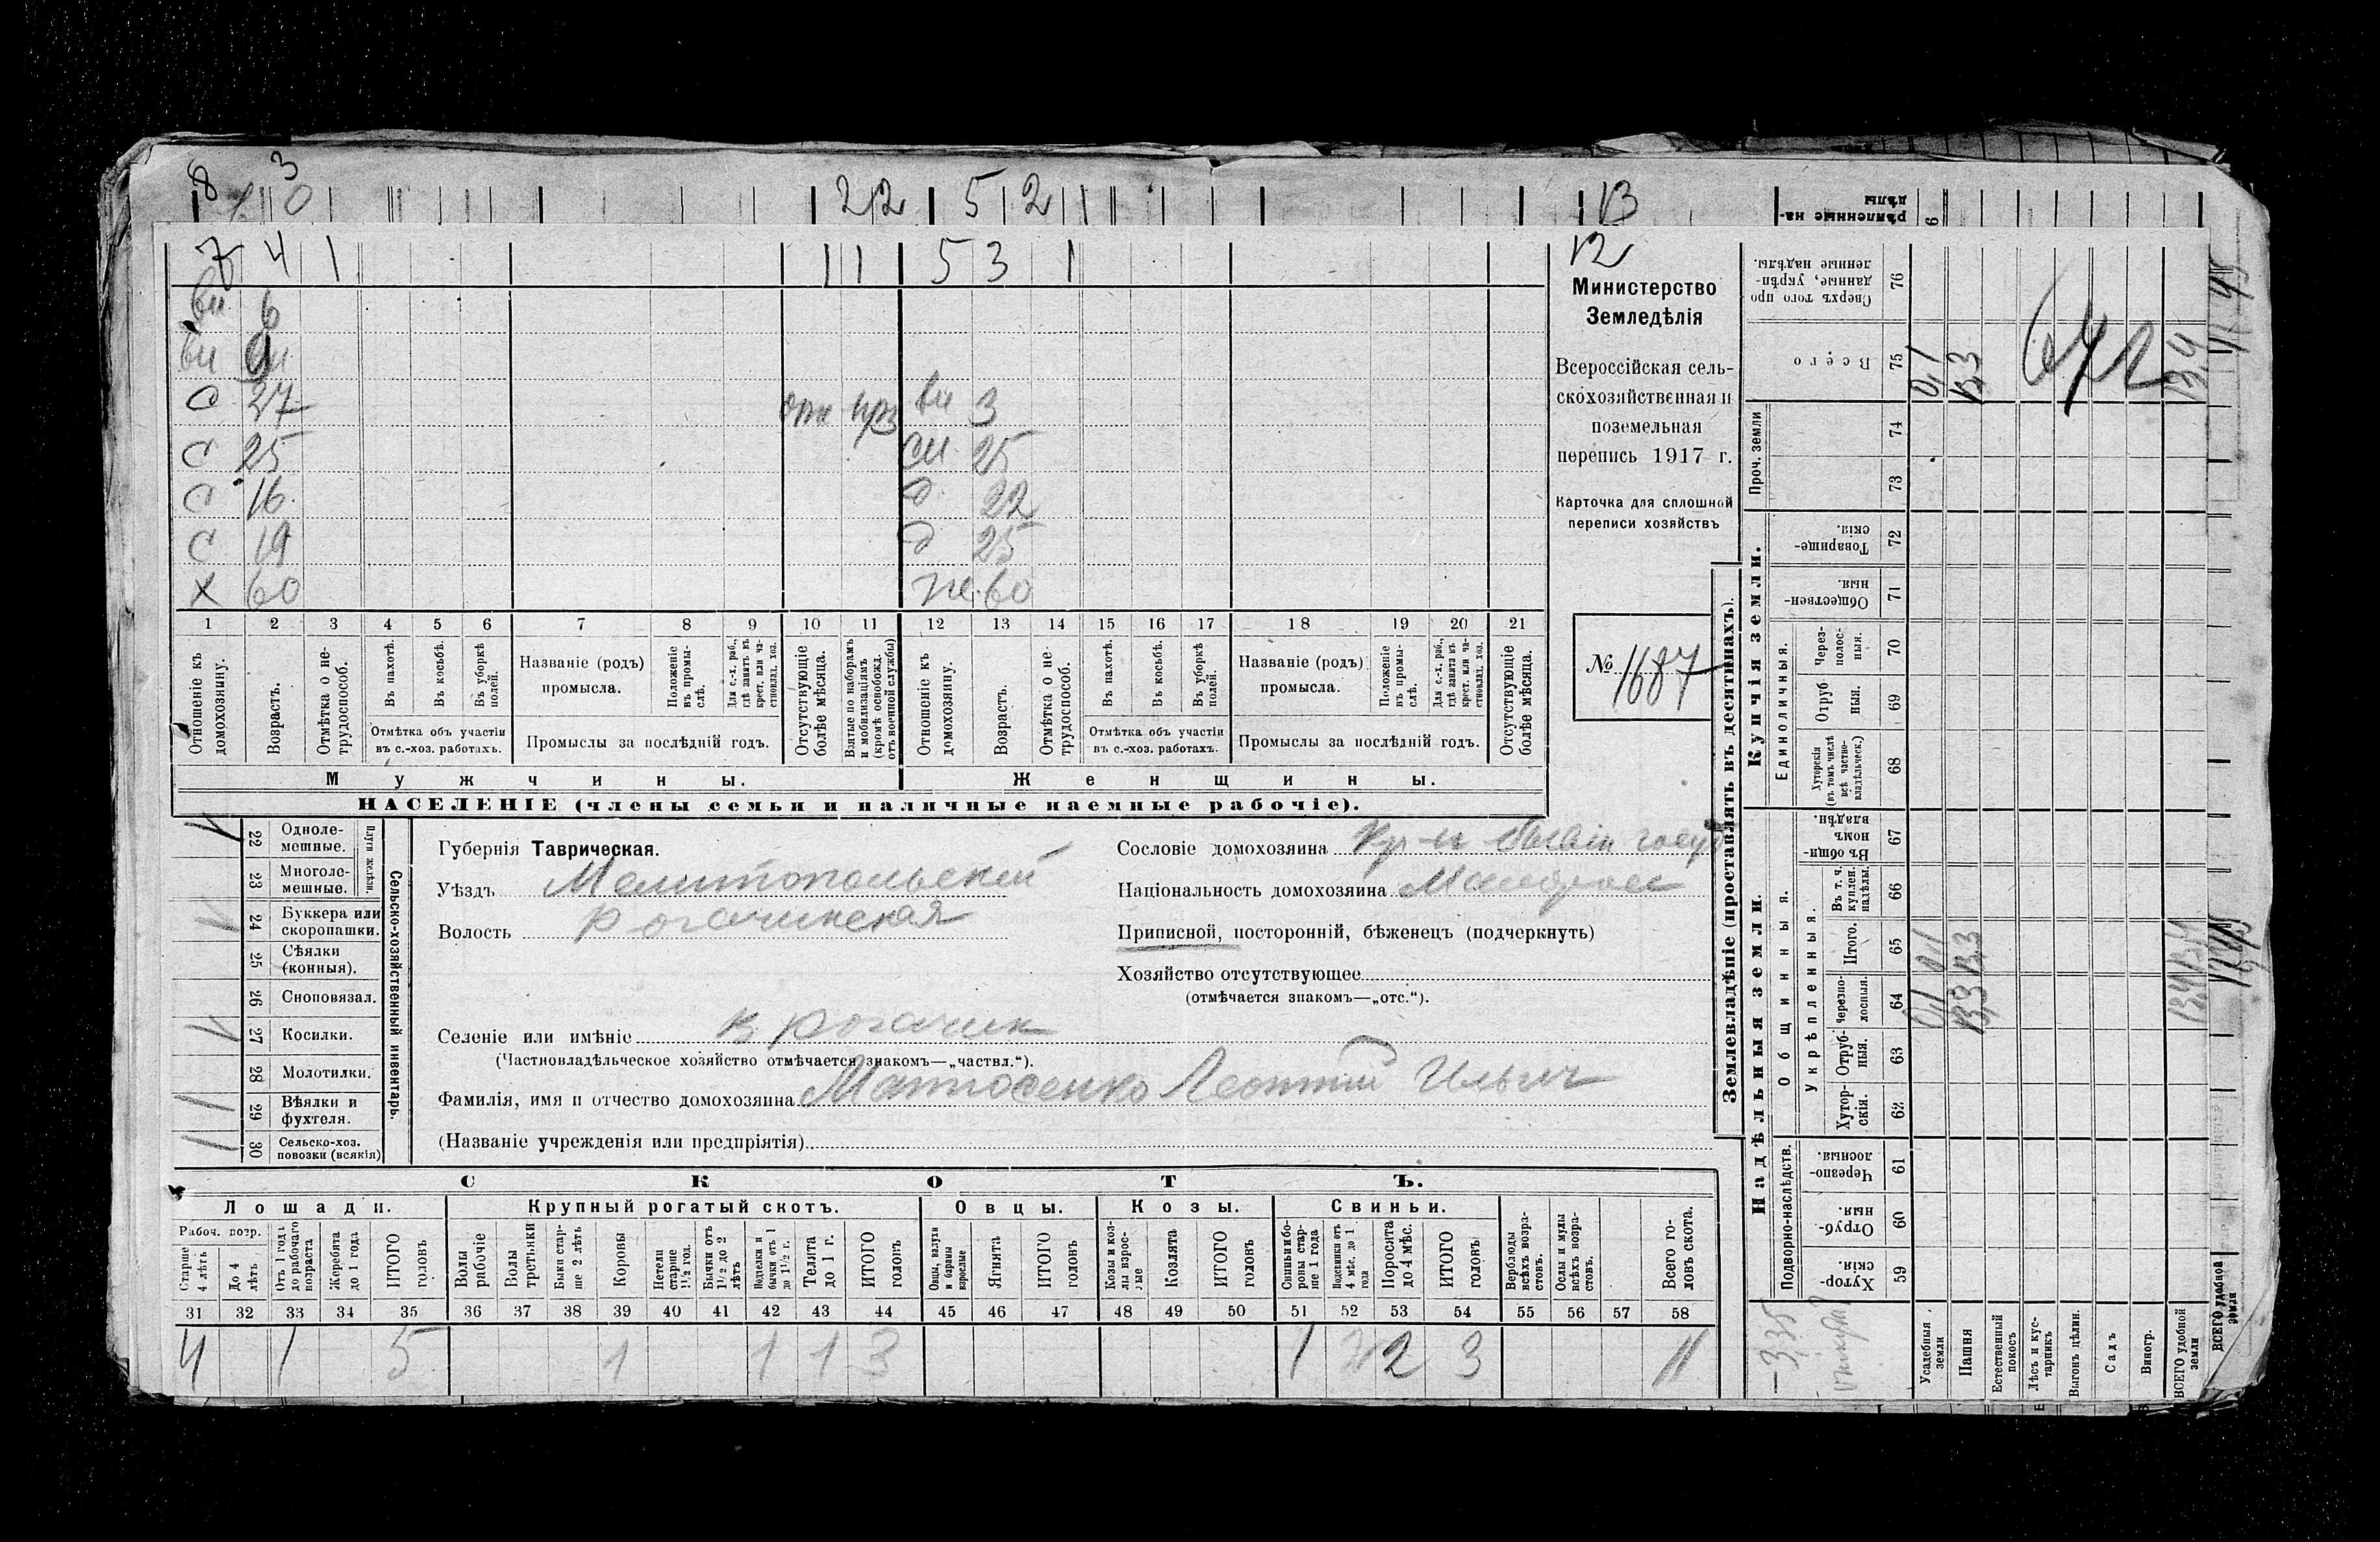 8 3 0 22 5 2 13
7 4 1 1 1 5 3 1 12
вн 6
вн
С 27 отс врз вн 3
С 25 сн 25
С 16 22
С 19 25
Х 60 же 60
1 2 3 4 5 6 7 8 9 10 11 12 13 14 15 16 17 18 19 20 21
Отношеніе къ домохозяину.
Возрастъ.
Отмѣтка о не-трудоспособ.
Въ пахотѣ.
Въ косьбѣ.
Въ уборкѣ полей.
Отмѣтка объ участіи въ с.-хоз. работахъ.
Названіе (родъ) промысла.
Положеніе въ промы-слѣ.
Для с.-х. раб., гдѣ занятъ въ крест. или ча-стновлад. хоз.
Промыслы за послѣдній годъ.
Отсутствующіе болѣе мѣсяца.
Взятые по наборамъ и мобилизаціямъ (кромѣ освобожд. отъ военной службы)
Отношеніе къ домохозяину.
Возрастъ.
Отмѣтка о не-трудоспособ.
Въ пахотѣ.
Въ косьбѣ.
Въ уборкѣ полей.
Отмѣтка объ участіи въ с.-хоз. работахъ.
Названіе (родъ) промысла.
Положеніе въ промы-слѣ.
Для с.-х. раб., гдѣ занята въ крест. или ча-стновлад. хоз.
Промыслы за послѣдній годъ.
Отсутствующіе болѣе мѣсяца.
Мужчины. Женщины.
НАСЕЛЕНІЕ (члены семьи и наличные наемные рабочіе).
Министерство
Земледѣлія
Всероссійская сель-
скохозяйственная и
поземельная
перепись 1917 г.
Карточка для сплошной
переписи хозяйствъ
№ 1687
22 Одноле-мешные.
23 Многоле-мешные.
Плуги желѣзн.
24 Буккера или скоропашки.
25 Сѣялки (конныя).
26 Сноповязал.
27 Косилки.
28 Молотилки.
29 Вѣялки и фухтеля.
30 Сельско-хоз. повозки (всякія)
Сельско-хозяйственный инвентарь.
Губернія Таврическая.
Уѣздъ Мелитопольский
Волость Рогачинская
Селеніе или имѣніе В рогачик
(Частновладѣльческое хозяйство отмѣчается знакомъ—„частвл.“).
Фамилія, имя и отчество домохозяина Матюсенко Леонтий Ильич
(Названіе учрежденія или предпріятія)
Сословіе домохозяина Кр-н бывш госуд
Національность домохозяина Малорос
Приписной, посторонній, бѣженецъ (подчеркнуть)
Хозяйство отсутствующее
(отмѣчается знакомъ—„отс.“).
СКОТЪ.
Лошади. Крупный рогатый скотъ. Овцы. Козы. Свиньи.
Рабоч. возр.
Старше 4 лѣтъ
До 4 лѣтъ
Отъ 1 года до рабочаго возраста
Жеребята до 1 года
ИТОГО головъ
Волы рабочіе
Волы третьяки
Быки стар-ше 2 лѣтъ
Коровы
Нетели старше 1½ год.
Бычки отъ 1½ до 2 лѣтъ
Подтелки и бычки отъ 1 до 1½ г.
Телята до 1 г.
ИТОГО головъ
Овцы, валухи и бараны взрослые
Ягнята
ИТОГО головъ
Козы и коз-лы взрос-лые
Козлята
ИТОГО головъ
Свиньи и бо-ровы стар-ше 1 года
Подсвинки отъ 4 мѣс. до 1 года
Поросята до 4 мѣс.
ИТОГО голов
Верблюды всѣхъ возра-стовъ.
Ослы и мулы всѣхъ возра-стовъ.
Всего го-ловъ скота.
31 32 33 34 35 36 37 38 39 40 41 42 43 44 45 46 47 48 49 50 51 52 53 54 55 56 57 58
4 1 5 1 1 1 3 1 2 3 11
Землевладѣніе (проставлять въ десятинахъ).
Надѣльныя земли. Купчія земли. Проч. земли
Подворно-наслѣдств.
Общинныя.
Укрѣпленныя.
Единоличныя.
59 Хутор-скія.
60 Отруб-ныя.
61 Черезпо-лосныя.
62 Хутор-скія.
63 Отруб-ныя.
64 Черезпо-лосныя.
65 Итого.
66 Въ т. ч. куплен. надѣлы.
67 Въ общи-номъ владѣн.
68 Хуторскія (въ томъ числѣ всѣ частно-владѣльческ.)
69 Отруб-ныя.
70 Через-полос-ныя.
71 Обществен-ныя.
72 Товарище-скія.
73
74
75 Всего
76 Сверхъ того про-данные, укрѣп-ленные надѣлы.
Усадебныя земли 0,1 0,1 0,1
Пашня 13,3 13,3 13,3
Естественный покосъ
Лѣсъ и кус-тарникъ
Выгонъ цѣлин.
Садъ
Виногр.
ВСЕГО удобной земли 13,4 13,4 13,4
ВСЕГО удобной земли